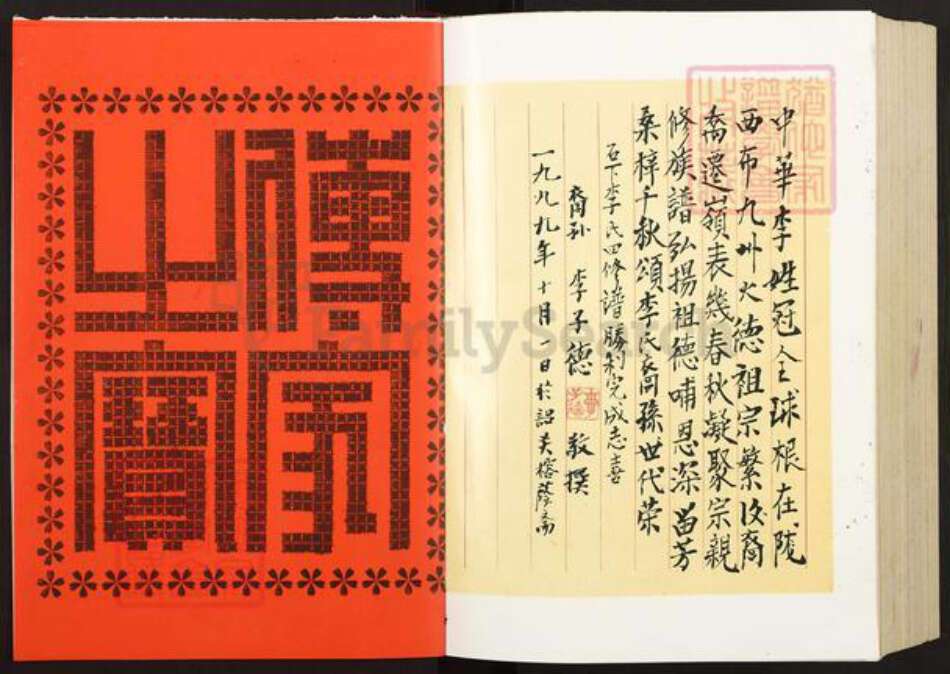 中華李姓冠全球根在陇
西布九州火德祖宗繁後裔
喬遷嶺表幾春秋凝聚宗親
修族譜弘揚祖德哺恩深留芳
桑梓千秋頌李氏裔孫世代荣
石下李氏四修譜勝利完成志喜
裔孙 李子德 敬撰
一九九九年十月一日於 榕蔭斋
傳家
之寶
FamilySearch